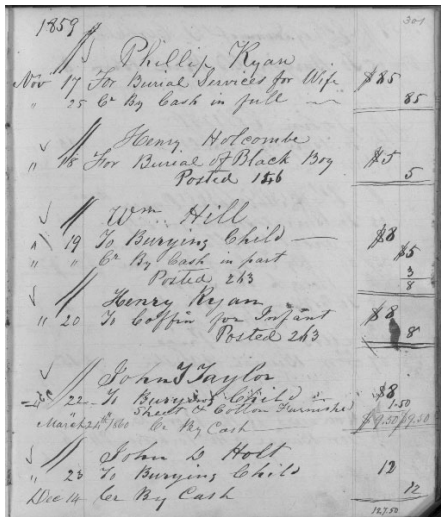 1859 301
Phillip Ryan
Nov 17 For Burial Services for Wife $85
" 25 Cr By Cash in full — 85
Henry Holcombe
" 18 For Burial of Black Boy $5
Posted 146 5
Wm Hill
" 19 To Burying Child — $8
" " Cr By Cash in part $5
Posted 243 3
8
Henry Ryan
" 20 To Coffin for Infant $8
Posted 243 8
John T Taylor
22 To Burying Child & $8
Sheet & Cotton Furnished 1.50
March 24th 1860 Cr By Cash $9.50 $9.50
John D Holt
" 23 To Burying Child 12
Dec 14 Cr By Cash 12
127.50